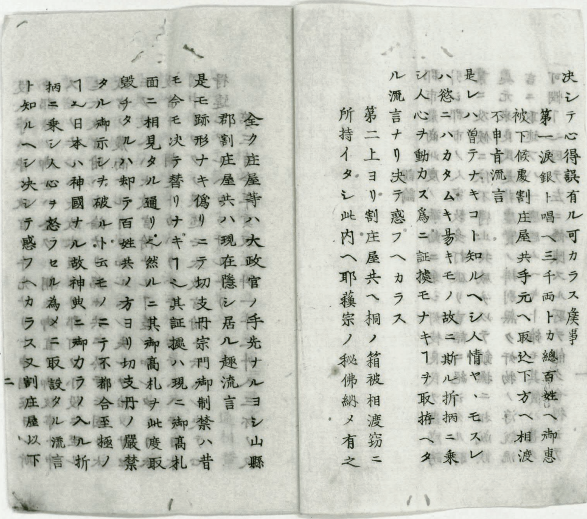 決シテ心得誤有ル可カラス候事
第一涙銀ト唱ヘ三千両トカ總百姓ヘ御惠
被下候處割庄屋共手元ヘ取込下方ヘ相渡
不申肯流言
是レハ曽テナキコト知ルヘシ人情ヤヽモスレ
ハ慾ニハカタムキ易キモノ故ニ斯ル折柄ニ乗
シ人心ヲ動カス為ニ証據モナキヿヲ取拵ヘタ
ル流言ナリ決テ惑フヘカラス
第二上ヨリ割庄屋共ヘ桐ノ箱被相渡窃ニ
所持イタシ此内ヘ耶蘓宗ノ秘佛納メ有之
全ク庄屋等ハ大政官ノ手先ナルヨシ山縣
郡割庄屋共ハ現在隱シ居ル趣流言
是モ跡形ナキ偽リニテ切支丹宗門御制禁ハ昔
モ今モ決テ替リナキヿハ其証據ハ現ニ御高札
面ニ相見タル通リ然ルニ其御高札ヲ此度取
毀チタルハ却テ百姓共ノ方ヨリ切支丹ノ嚴禁
タル御示シヲ破ルト云モノニテ不都合至極ノ
日本ハ神國ナル故神輿ニ御カラノ入ル折
柄ニ乗シ人心ヲ怒ラセル為メニ取設タル流言
ト知ルヘシ決シテ惑フヘカラス又割庄屋以下
二